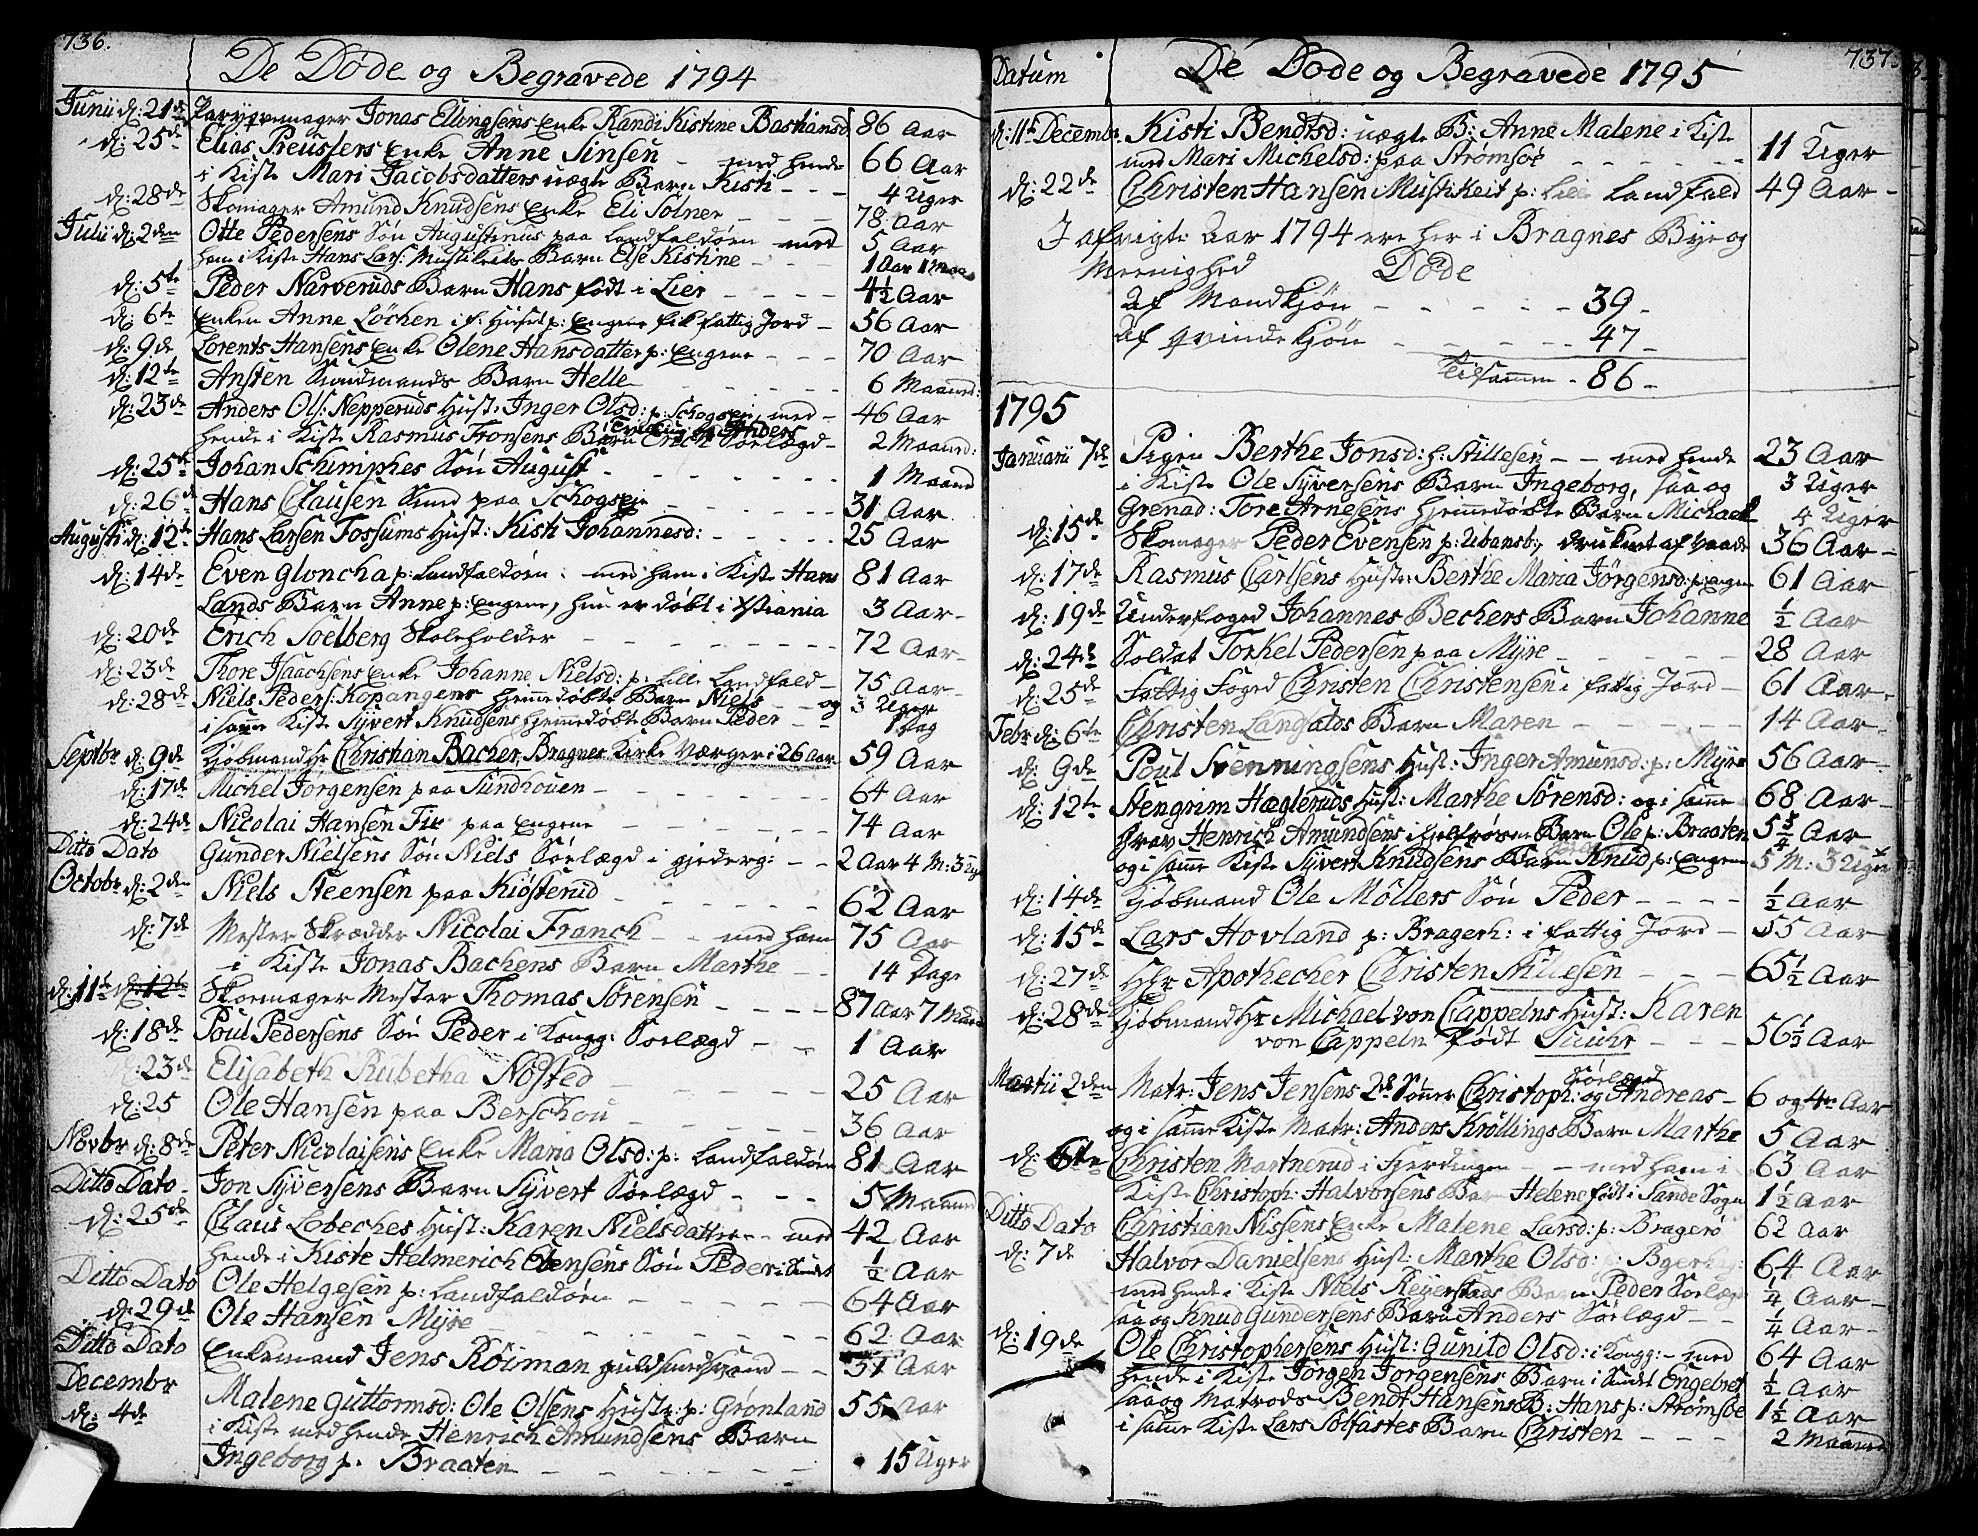 736.
De Døde og Begravede 1794
Junii d: 21de Jonas Ellingsens Enke Randi Kistine Bastiansd 86 Aar
d: 25de Elias Preuslers Enke Anne Jinsen - med hende 66 Aar
i Kiste Mari Jacobsdatters uægte Barn Kisti - - - 4 Uger
d: 28de Skomager Amund Knudsens Enke Eli Solner - - - 78 Aar
Julii d: 2den Otte Pedersens Søn Augustinus paa Landfaldøen med 5 Aar
ham i Kiste Hans Lars: Barn Else Kistine - - - 1 Aar 1 Maan
d: 5te Peder Narveruds Barn Hans født i Lier - - - - 4½ Aar
d: 6te Enken Anne Løchen i f: Huset p: Engene fik fattig Jord - 56 Aar
d: 9de Lorents Hansens Enke Olene Hansdatter p: Engene - - - 70 Aar
d: 12te Ansten Barn Helle - - - - 6 Maaned:
d: 23de Anders Ols: Nepperuds Hust: Inger Olsd: p: Schogsej, med - 46 Aar
hende i Kiste Rasmus Fronsens Barn Erich Sørlægd - 2 Maaned:
d: 25de Johan Schimphes Søn August - - - - 1 Maaned
d: 26de Hans Clausen paa Schogsejen - - - - 31 Aar
Augusti d: 12te Hans Larsen Fossums Hust: Kisti Johannesd: - - - - 25 Aar
d: 14de Even Gloncha p: Landfaldøen: med ham i Kiste Hans 81 Aar
Lands Barn Anne p: Engene, hun er døbt i Xstiania 3 Aar -
d: 20de Erich Soelberg Skoleholder - - - - 72 Aar -
d: 23de Thore Isaachsens Enke Johanne Nielsd: p: Lille Landfald - 75 Aar -
d: 28de Niels Peders: Kopangens hjemmedøbte Barn Niels - - og 3 Uger
i samme Kiste Syvert Knudsens hjemmedøbte Barn Peder - 1 Dag
Septbr d: 9de Kjøbmand Hr Christian Bacher, Bragnes Kirke Værger i 26 Aar 59 Aar
d: 17de Michel Jørgensen paa Sundhouen - - - - 64 Aar
d: 24de Nicolai Hansen Fir paa Engene - - - - 74 Aar
Ditto Dato Gunder Nielsens Søn Niels Sørlægd i gjederg: - - 2 Aar 4 M: 3 Ug
Octobr d: 2den Niels Steensen paa Kiøsterud - - - - 62 Aar
d: 7de Mester Skrædder Nicolai Franch - - med ham 75 Aar
i Kiste Jonas Bachens Barn Marthe - - 14 Dage
d: 11te d: 12te Skoemager Mester Thomas Sørensen - - - - 87 Aar 7 Maan
d: 18de Poul Pedersens Søn Peder i Kongg: Sørlægd - - 1 Aar
23de Elisabeth Rubetha Nøsted - - - - 25 Aar
d: 25 Ole Hansen paa Berschou - - - - 36 Aar
Novbr d: 8de Peter Nicolaisens Enke Maria Olsd: p: Landfaldøen 81 Aar
Ditto Dato - Jon Syversens Barn Syvert Sørlægd - - - 5 Maaned
d: 25de Claus Lobeches Hust: Karen Nielsdatter - - med 42 Aar
hende i Kiste Helmerich Olensens Søn Peder i Sundet ½ Aar
Ditto Dato Ole Helgesen p: Landfaldøen - - - - 64 Aar
d: 29de Ole Hansen Myre - - - - 62 Aar
Ditto Dato Enkemand Jens Røiman Guldsmedsvend - - 51 Aar
Decembr
d: 4de Malene Guttormsd: Ole Olsens Hustr: p: Grønland 55 Aar
i Kiste med hende Henrich Amundsens Barn
Ingeborg p: Braaten - - - - 15 Uger
737
Datum De Døde og Begravede 1795
d: 11te Decembr. Kisti Bendtsd: uægte B: Anne Malene i Kiste
med Mari Michelsd: paa Strømsøe - - - - 11 Uger
d: 22de Christen Hansen Mushkeit p: Lille Landfald 49 Aar -
I afvigte Aar 1794 ere her i Bragnes Bye og
Meenighed Døde
Af Mandkjøn - - - - 39 -
Af Qvindekjøn - - - - 47 -
Tilsammen - 86 -
1795
Januarii 7de Pigen Berthe Jonsd: h: Stillesen - - med hende 23 Aar
i Kiste Ole Syversens Barn Ingeborg, saa og 3 Uger
Grenad: Tore Arnesens hjemmedøbte Barn Michael 4 Uger
d: 15de Skomager Peder Evensen p: Ubansb:, druknet af Vaade 36 Aar -
d: 17de Rasmus Carlsens Hust: Berthe Maria Jørgensd: p: Engen 61 Aar
d: 19de Underfoged Johannes Bechers Barn Johanne ½ Aar
d: 24de Soldat Torkel Pedersen paa Myre - - - - 28 Aar
d: 25de Fattig Foged Christen Christensen i fattig Jord - 61 Aar -
Febr: d: 6te Christen Langfalds Barn Maren - - - - 14 Aar -
d: 9de Poul Svenningsens Hust: Inger Amunsd: p: Myre 56 Aar -
d: 12te Stengrim Hægleruds Hust: Marthe Sørensd: og i samme 68 Aar -
Grav Henrich Amundsens Barn Ole p: Braaten 5¾ Aar -
og i samme Kiste Syvert Knudsens Barn Knud p: Engene 5 M: 3 Uger
d: 14de Kjøbmand Ole Møllers Søn Peder - - - - ½ Aar
d: 15de Lars Hovland p: Bragerh: i fattig Jord - 55 Aar
d: 27de Hr Apothecher Christen Stillesen - - - 65½ Aar
d: 28de Kjøbmand Hr Michael von Cappelns Hust: Karen
von Cappeln født - - - 56½ Aar
Martii 2den Matr: Jens Jensens 2de Sønner Christoph: og Andreas - Sørlægd 6 og 4 Aar
og i samme Kiste Matr: Anders Krøllings Barn Marthe 5 Aar
d: 6te Christen Martnerud i Fjerdingen - - med ham i 63 Aar
Kiste Christoph: Halvorsens Barn Helene født i Sande Sogn 1½ Aar
Ditto Dato Christian Nissens Enke Malene Larsd: p: Bragerø 62 Aar
d: 7de Halvor Danielsens Hust: Marthe Olsd: 64 Aar
med hende i Kiste Niels Barn Peder Sørlægd ¼ Aar -
saa og Knud Gundersens Barn Anders Sørlægd - - ¼ Aar -
d: 19de Ole Christophersens Hust: Gunild Olsd: i Kongg: - med 64 Aar
hende i Kiste Jørgen Jørgensens Barn i Sundet Engebret ½ Aar
saa og Matrods Bendt Hansens B: Hans p: Strømsøe 1½ Aar
i samme Kiste Lars Solfastes Barn Christen - - - - 2 Maaned